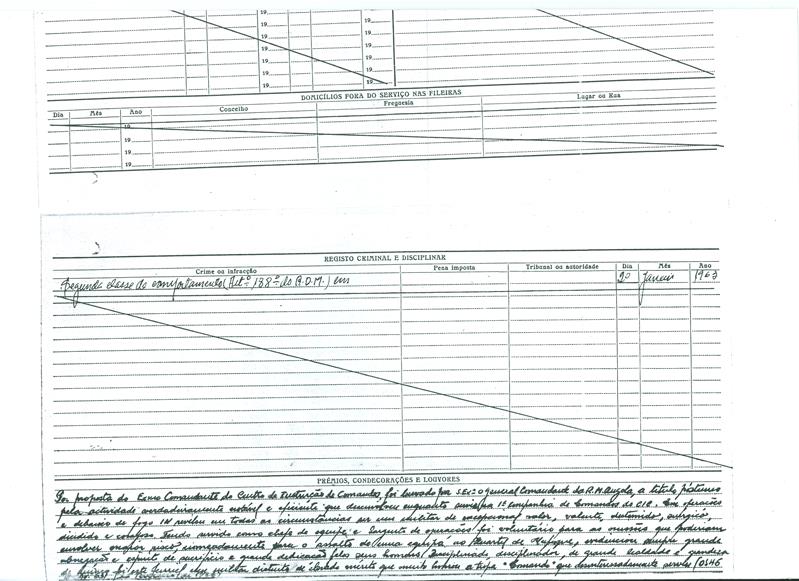 19
19
19
19
19
19
19
19
19
19
19
DOMICÍLIOS FORA DO SERVIÇO NAS FILEIRAS
Dia Mês Ano Concelho Freguesia Lugar ou Rua
19
19
19
19
REGISTO CRIMINAL E DISCIPLINAR
Crime ou infracção Pena imposta Tribunal ou autoridade Dia Mês Ano
Segunda classe de comportamento (Artº 188º do R.D.M.) em Janeiro 1963
PRÉMIOS, CONDECORAÇÕES E LOUVORES
Por proposta do Exmo Comandante do Centro de Instrução de Comandos, foi louvado por S.EXª o General Comandante da R.M.Angola, a título póstumo
pela actividade verdadeiramente notável e eficiente que desenvolveu enquanto 1ª Companhia de Comandos do C.I.C. Em operações
e debaixo de fogo IN revelou em todas as circunstâncias ser um militar de excepcional valor, valente, destemido, enérgico,
decidido e Tendo servido como chefe de equipa e Sargento de operações foi voluntário para as missões que poderiam
envolver maior risco, nomeadamente para o assalto de uma equipa ao evidenciou sempre grande
abnegação e espírito de sacrifício e grande dedicação pelos seus homens. Disciplinado, disciplinador, de grande lealdade e grandeza
de militar distinto de elevado mérito que muito honrou a tropa "Comando" que